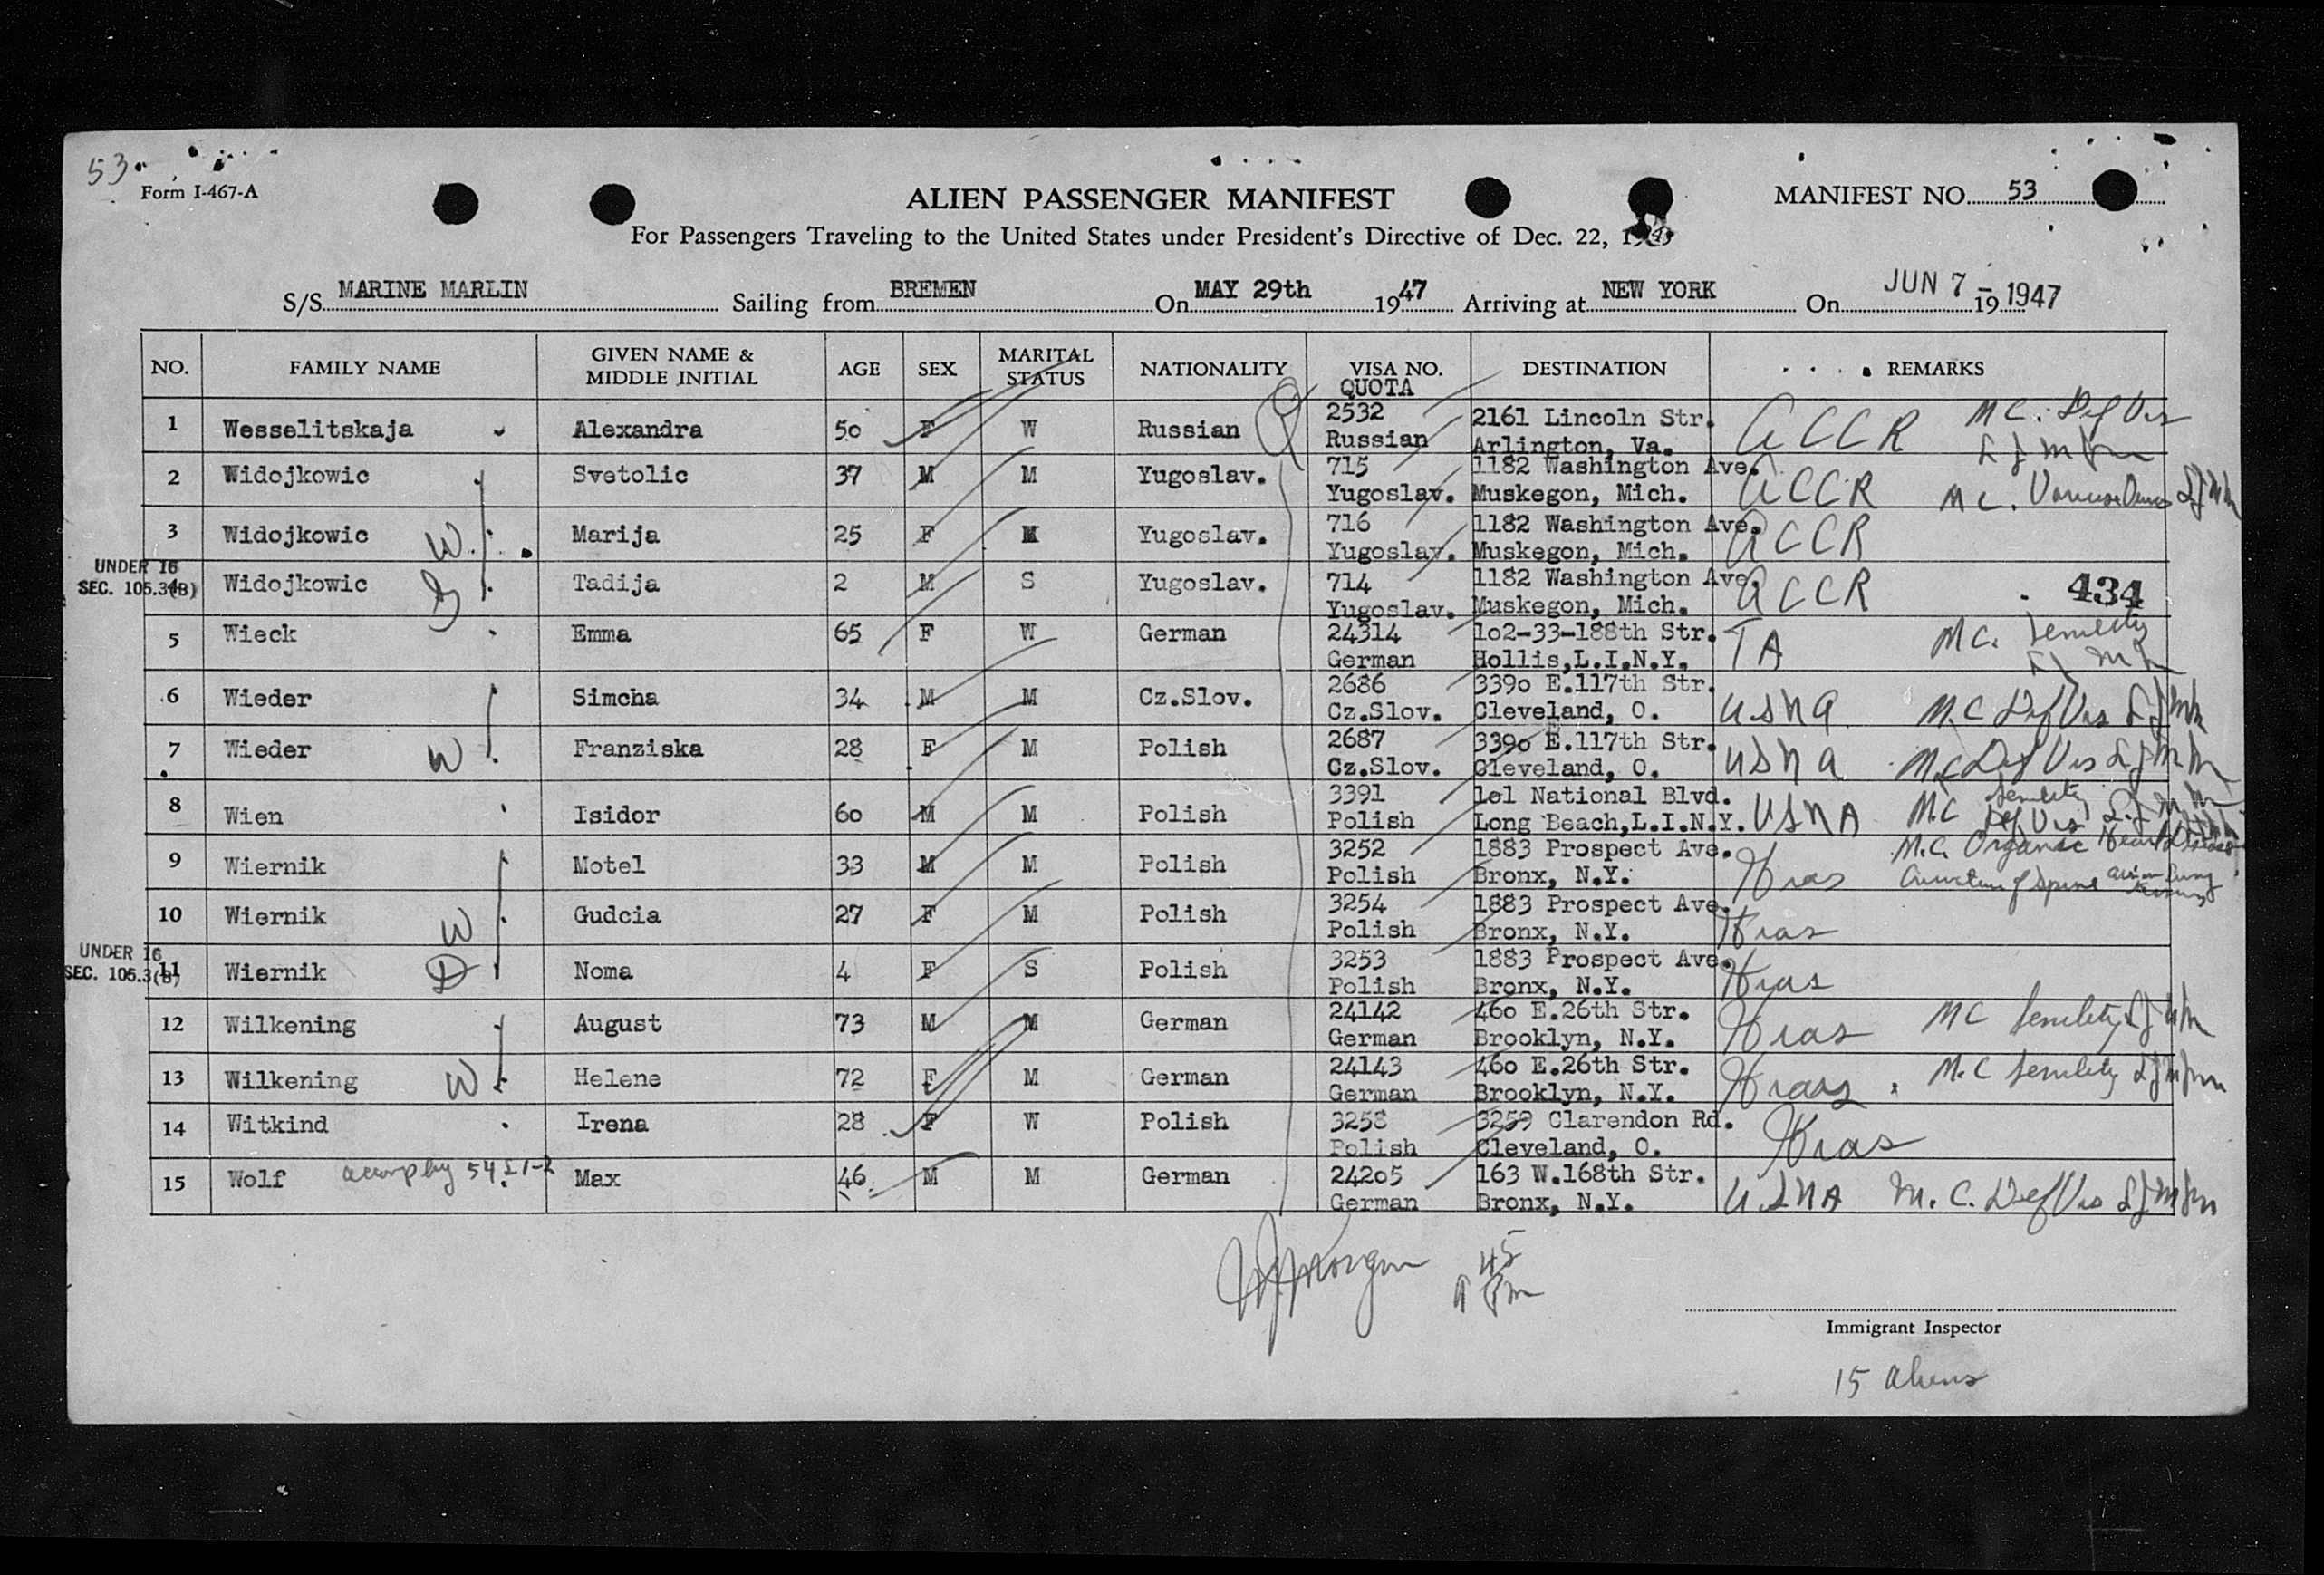 53
Form I-467-A
ALIEN PASSENGER MANIFEST
MANIFEST NO. 53
For Passengers Traveling to the United States under President's Directive of Dec. 22,
S/S MARINE MARLIN Sailing from BREMEN On MAY 29th 1947 Arriving at NEW YORK On JUN 7 - 19 1947
NO. FAMILY NAME GIVEN NAME & MIDDLE INITIAL AGE SEX MARITAL STATUS NATIONALITY VISA NO. QUOTA DESTINATION REMARKS
1 Wesselitskaja Alexandra 50 F W Russian 2532 2161 Lincoln Str. ACCR M C. Def Vis
Russian Arlington, Va.
2 Widojkowic Svetolic 37 M M Yugoslav. 715 1182 Washington Ave. ACCR M C.
Yugoslav. Muskegon, Mich.
3 Widojkowic W Marija 25 F M Yugoslav. 716 1182 Washington Ave. ACCR
Yugoslav. Muskegon, Mich.
UNDER 16
SEC. 105.3(B)
4 Widojkowic Tadija 2 M S Yugoslav. 714 1182 Washington Ave. ACCR 434
Yugoslav. Muskegon, Mich.
5 Wieck Emma 65 F W German 24314 1o2-33-188th Str. TA M C. Senility
German Hollis,L.I.N.Y.
6 Wieder Simcha 34 M M Cz.Slov. 2686 339o E.117th Str. USNA M.C Def Vis
Cz.Slov. Cleveland, O.
7 Wieder W Franziska 28 F M Polish 2687 339o E.117th Str. USNA M.C Def Vis
Cz.Slov. Cleveland, O.
8 Wien Isidor 6o M M Polish 3391 1o1 National Blvd. USNA M.C Senility Def Vis
Polish Long Beach,L.I.N.Y.
9 Wiernik Motel 33 M M Polish 3252 1883 Prospect Ave. Hias M.C. Organic Heart Disease
Polish Bronx, N.Y. Curvature of Spine
10 Wiernik W Gudcia 27 F M Polish 3254 1883 Prospect Ave. Hias
Polish Bronx, N.Y.
UNDER 16
SEC. 105.3(B)
11 Wiernik D Noma 4 F S Polish 3253 1883 Prospect Ave. Hias
Polish Bronx, N.Y.
12 Wilkening August 73 M M German 24142 46o E.26th Str. Hias M C Senility
German Brooklyn, N.Y.
13 Wilkening W Helene 72 F M German 24143 46o E.26th Str. Hias M.C Senility
German Brooklyn, N.Y.
14 Witkind Irena 28 F W Polish 3258 3259 Clarendon Rd. Hias
Polish Cleveland, O.
15 Wolf accomp by 54 L 1-2 Max 46 M M German 24205 163 W.168th Str. USNA M. C. Def Vis
German Bronx, N.Y.
Immigrant Inspector
15 aliens